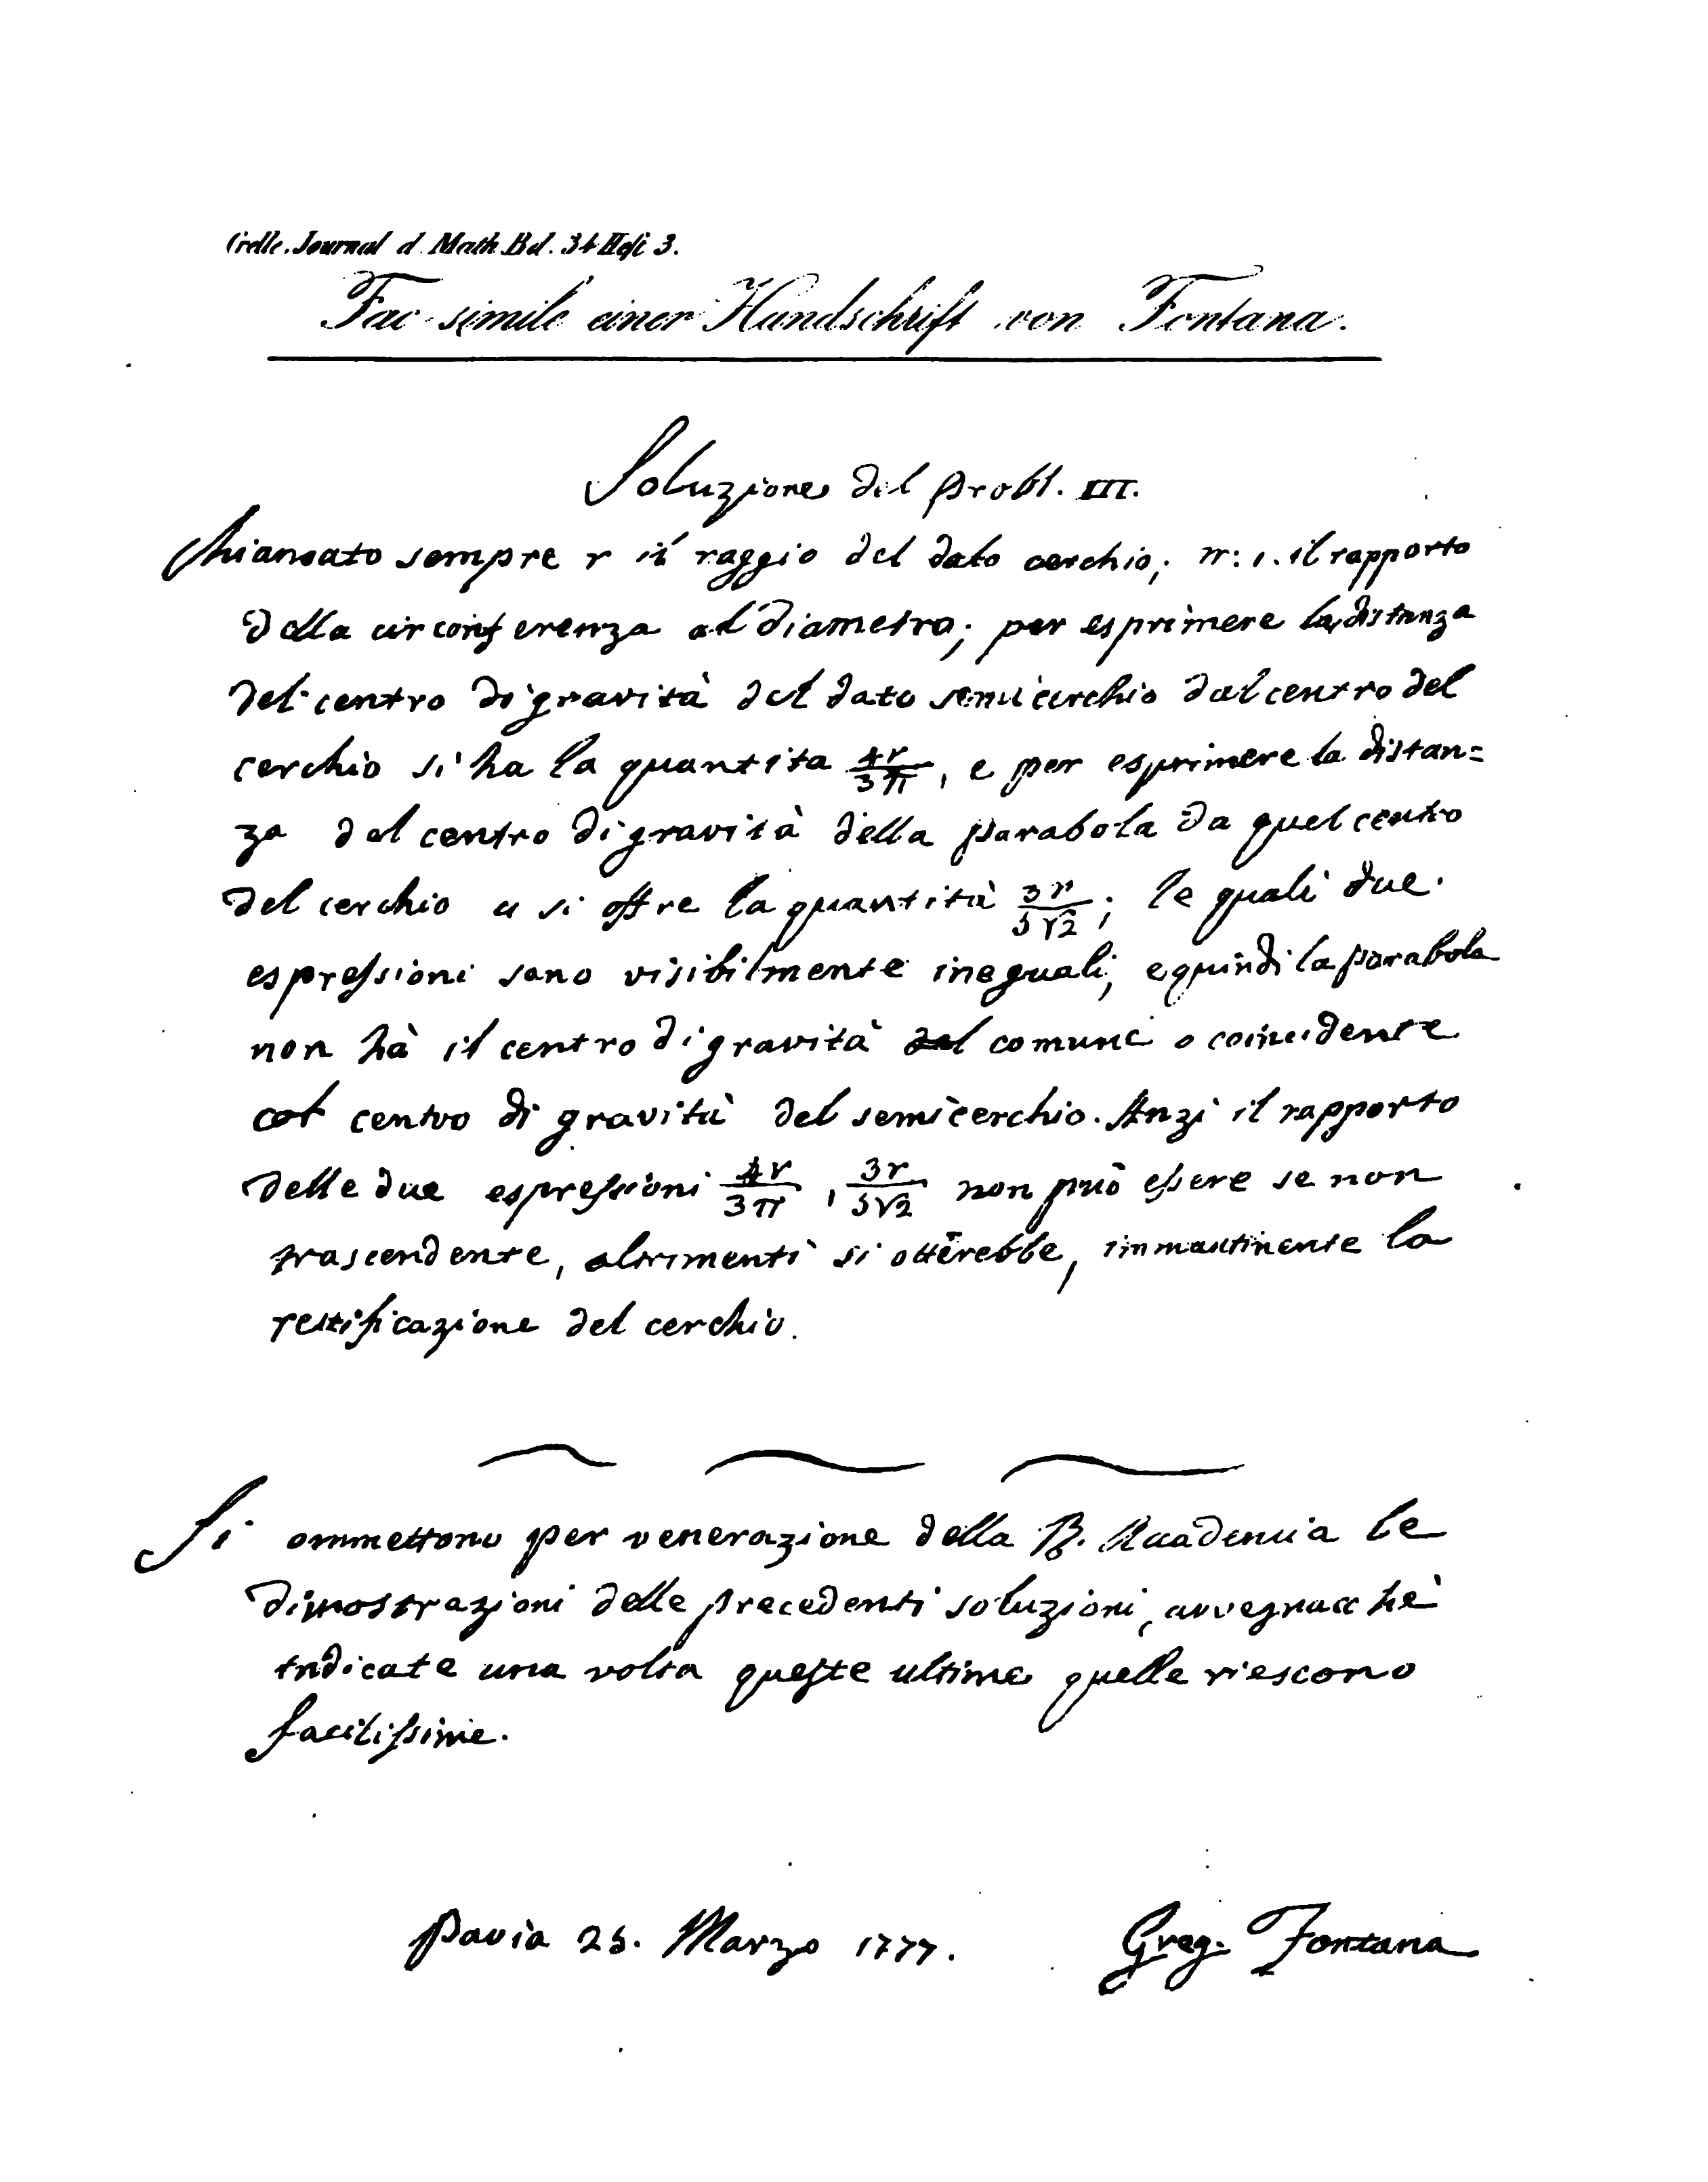 Crelle. Journal d. Math. Bd. 34 Heft 3.
Fac-simile einer Handschrift von Fontana.
Soluzione del Probl. III.
Chiamato sempre r il raggio del dato cerchio; π : 1. il rapporto
della circonferenza al diametro; per esprimere la distanza
del centro di gravità del dato semicerchio dal centro del
cerchio si ha la quantita 4r/3π, e per esprimere la distan=
za del centro di gravità della parabola da quel centro
del cerchio ci si offre la quantità 3r/5√2; le quali due
espreſsioni sono visibilmente ineguali, e quindi la parabola
non hà il centro di gravità del comune o coincidente
col centro di gravità del semicerchio. Anzi il rapporto
delle due espreſsioni 4r/3π, 3r/5√2 non può eſsere se non
trascendente, altrimenti si otterebbe, immantinente la
rettificazione del cerchio.
Si ommettono per venerazione della R. Accademia le
dimostrazioni delle precedenti soluzioni, avvegnacchè
indicate una volta queſte ultime quelle riescono
faciliſsime.
Pavia 25. Marzo 1777. Greg. Fontana